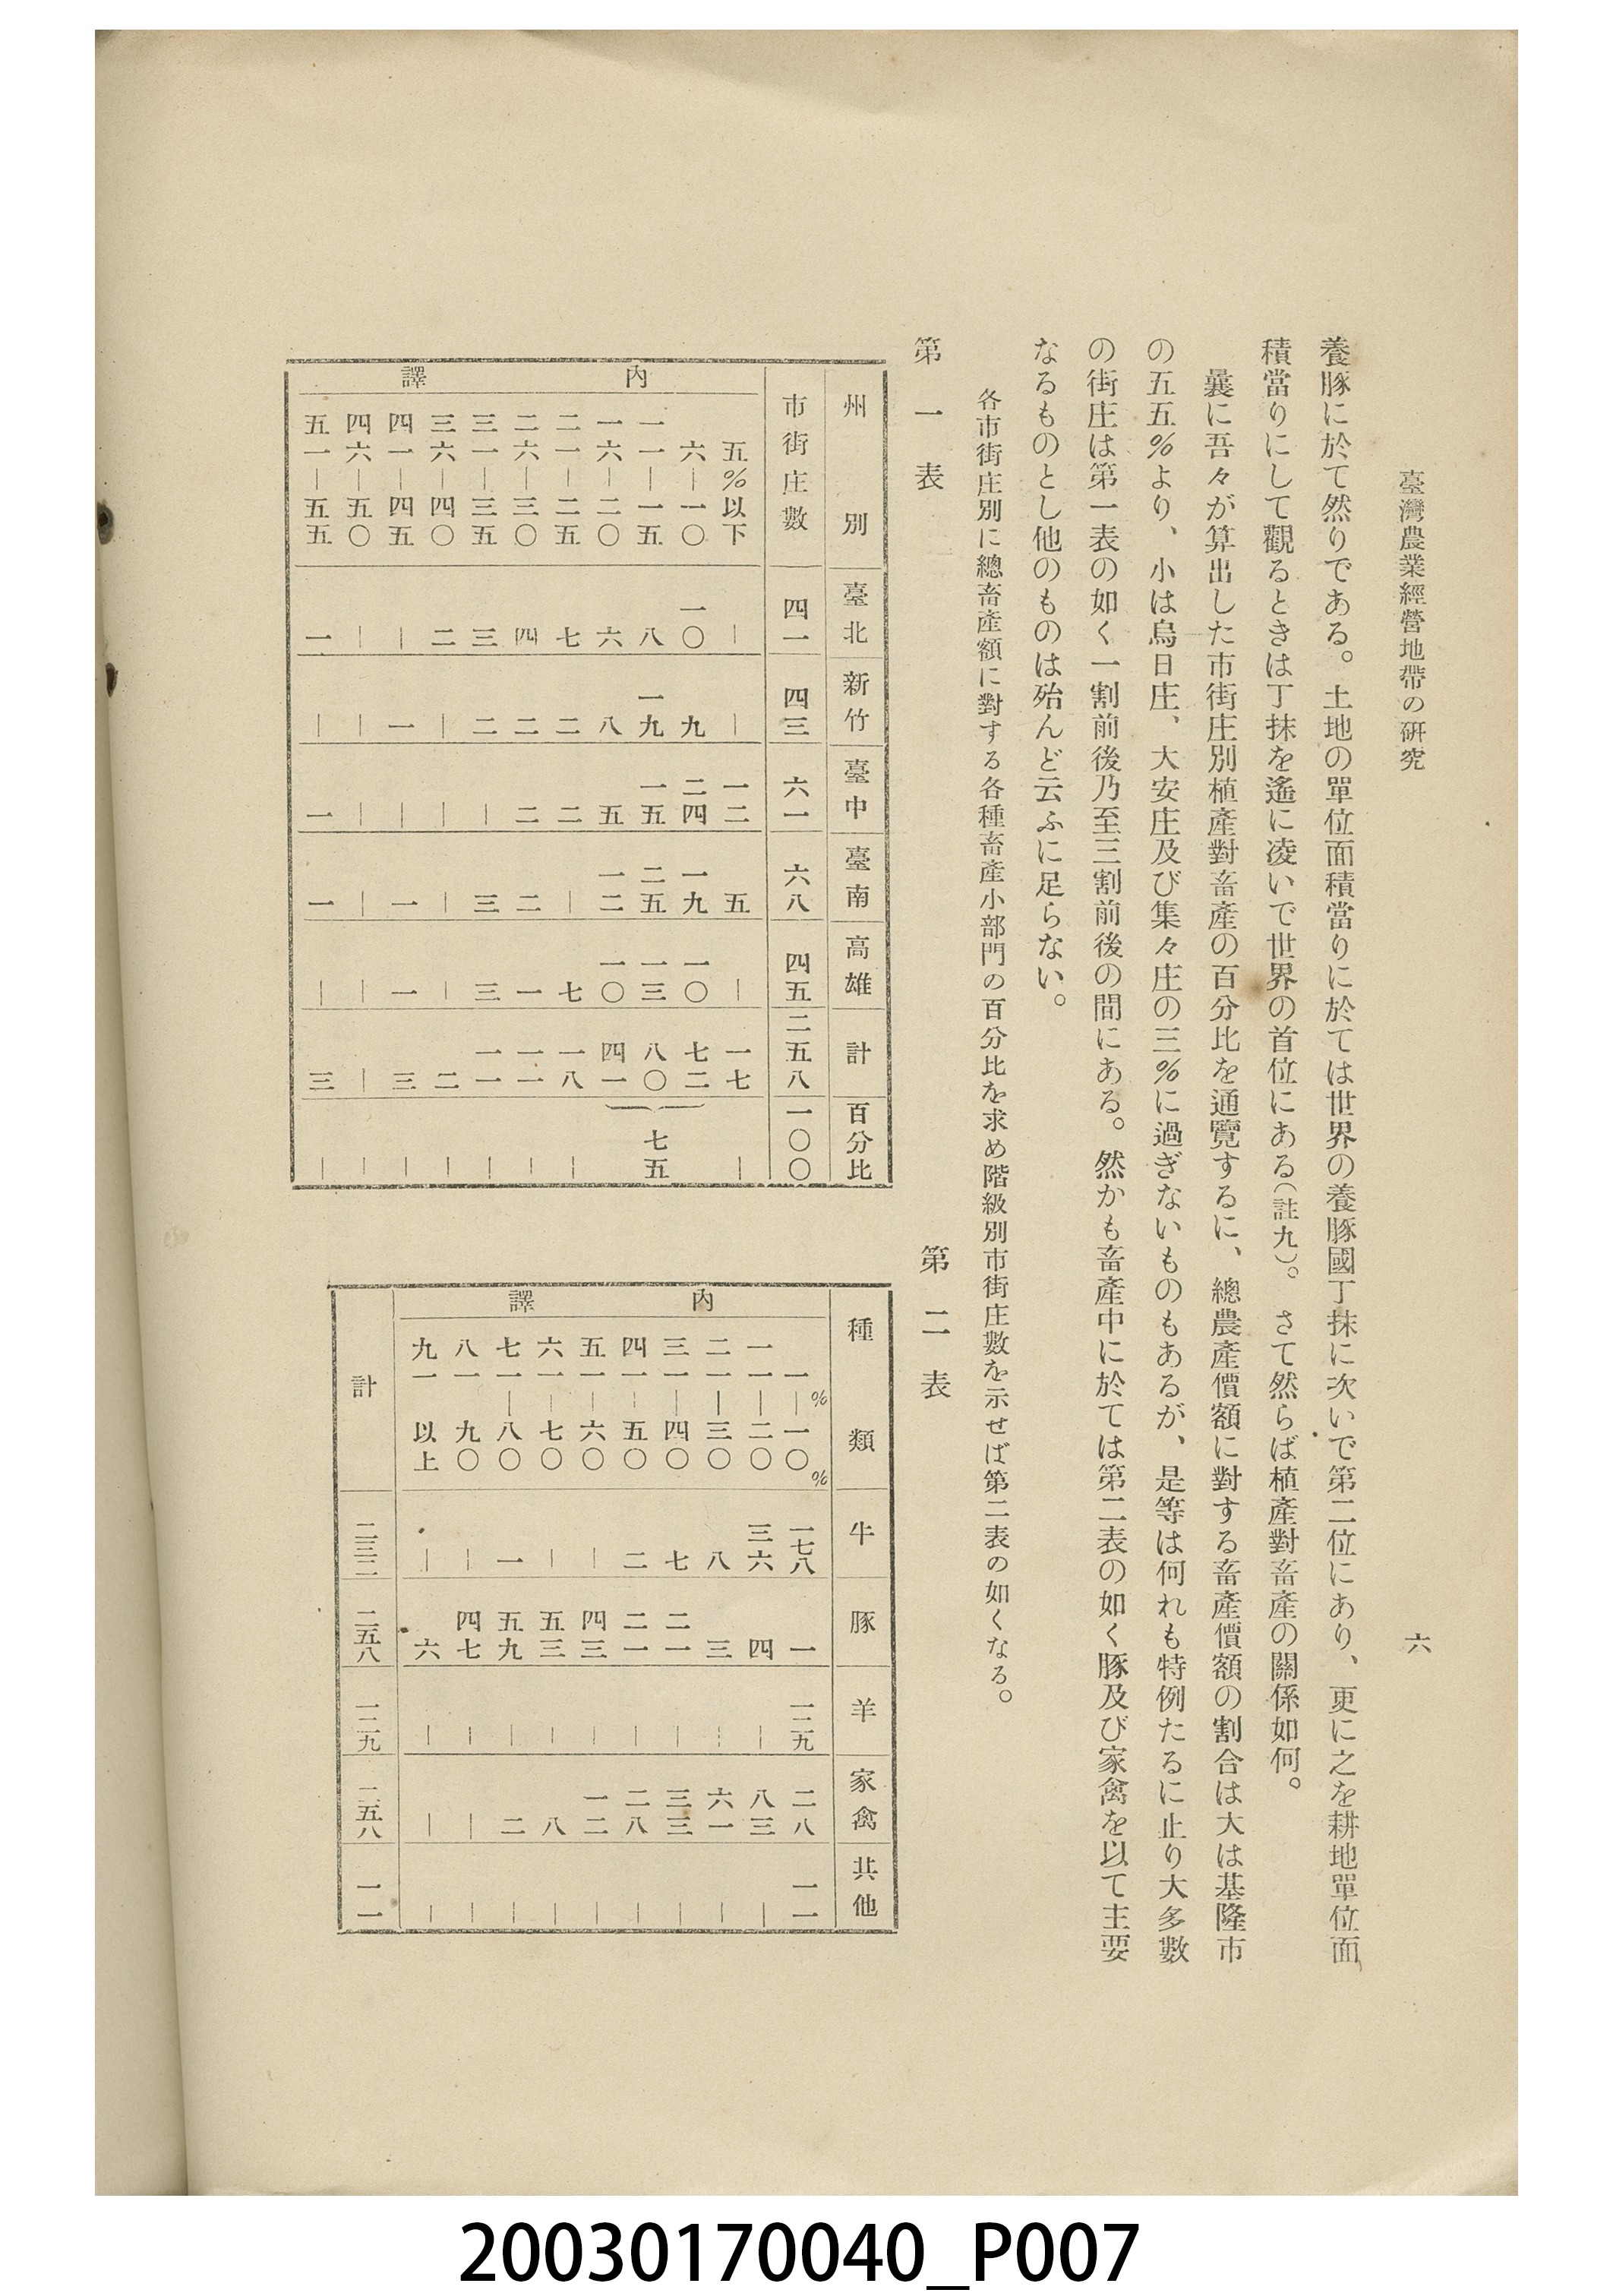 臺灣農業經營地帶の研究
六
養豚に於て然りである。土地の單位面積當りに於ては世界の養豚國丁抹に次いで第二位にあり、更に之を耕地單位面
積當りにして觀るときは丁抹を遙に凌いで世界の首位にある(註九)。さて然らば植產對畜產の關係如何。
曩に吾々が算出した市街庄別植產對畜產の百分比を通覽するに、總農產價額に對する畜產價額の割合は大は基隆市
の五五%より、小は烏日庄、大安庄及び集々庄の三%に過ぎないものもあるが、是等は何れも特例たるに止り大多數
の街庄は第一表の如く一割前後乃至三割前後の間にある。然かも畜產中に於ては第二表の如く豚及び家禽を以て主要
なるものとし他のものは殆んど云ふに足らない。
各市街庄別に總畜產額に對する各種畜產小部門の百分比を求め階級別市街庄數を示せば第二表の如くなる。
第一表
州別 臺北 新竹 臺中 臺南 高雄 計 百分比
市街庄數 四一 四三 六一 六八 四五 二五八 一〇〇
內譯
五%以下 | | 一二 五 | 一七 |
六|一〇 一〇 九 二四 一九 一〇 七二
一一|一五 八 一九 一五 二五 一三 八〇 七五
一六|二〇 六 八 五 一二 一〇 四一
二一|二五 七 二 二 | 七 一八 |
二六|三〇 四 二 二 二 一 一一 |
三一|三五 三 二 | 三 三 一一 |
三六|四〇 二 | | | | 二 |
四一|四五 | 一 | 一 一 三 |
四六|五〇 | | | | | | |
五一|五五 一 | 一 一 | 三 |
第二表
種類 牛 豚 羊 家禽 其他
內譯
一%|一〇% 一七八 一 一二九 二八 一一
一一|二〇 三六 四 | 八三 |
二一|三〇 八 三 | 六一 |
三一|四〇 七 二一 | 三三 |
四一|五〇 二 二一 | 二八 |
五一|六〇 | 四三 | 一二 |
六一|七〇 | 五三 | 八 |
七一|八〇 一 五九 | 二 |
八一 九〇 | 四七 | | |
九一以上 | 六 | | |
計 二三二 二五八 一二九 二五八 一一
20030170040_P007